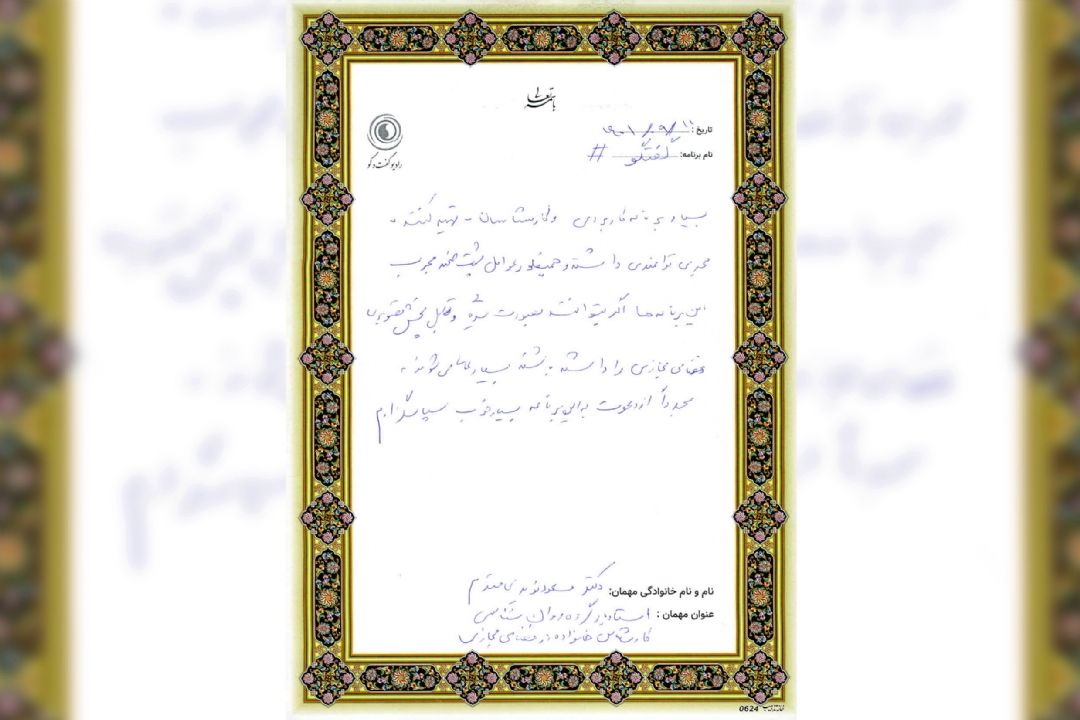 باسمه تعالی
تاریخ: ۱۴۰۱/۹/۱۱
رادیو گفت و گو
نام برنامه: گفتگو #
بسیار برنامه کاربردی و کارشناسان - تهیه کننده -
مجری توانمندی داشته و همینطور عوامل پشت صحنه مجرب
این برنامه‌ها اگر بتوانند بصورت و قابل پخش تصویری
فضای مجازی را داشته باشند بسیار می‌شوند
مجدداً از دعوت به این برنامه بسیار خوب سپاسگزارم
نام و نام خانوادگی مهمان: دکتر مسعود
عنوان مهمان: استادیار گروه روان شناسی
کارشناس خانواده در فضای مجازی
0624